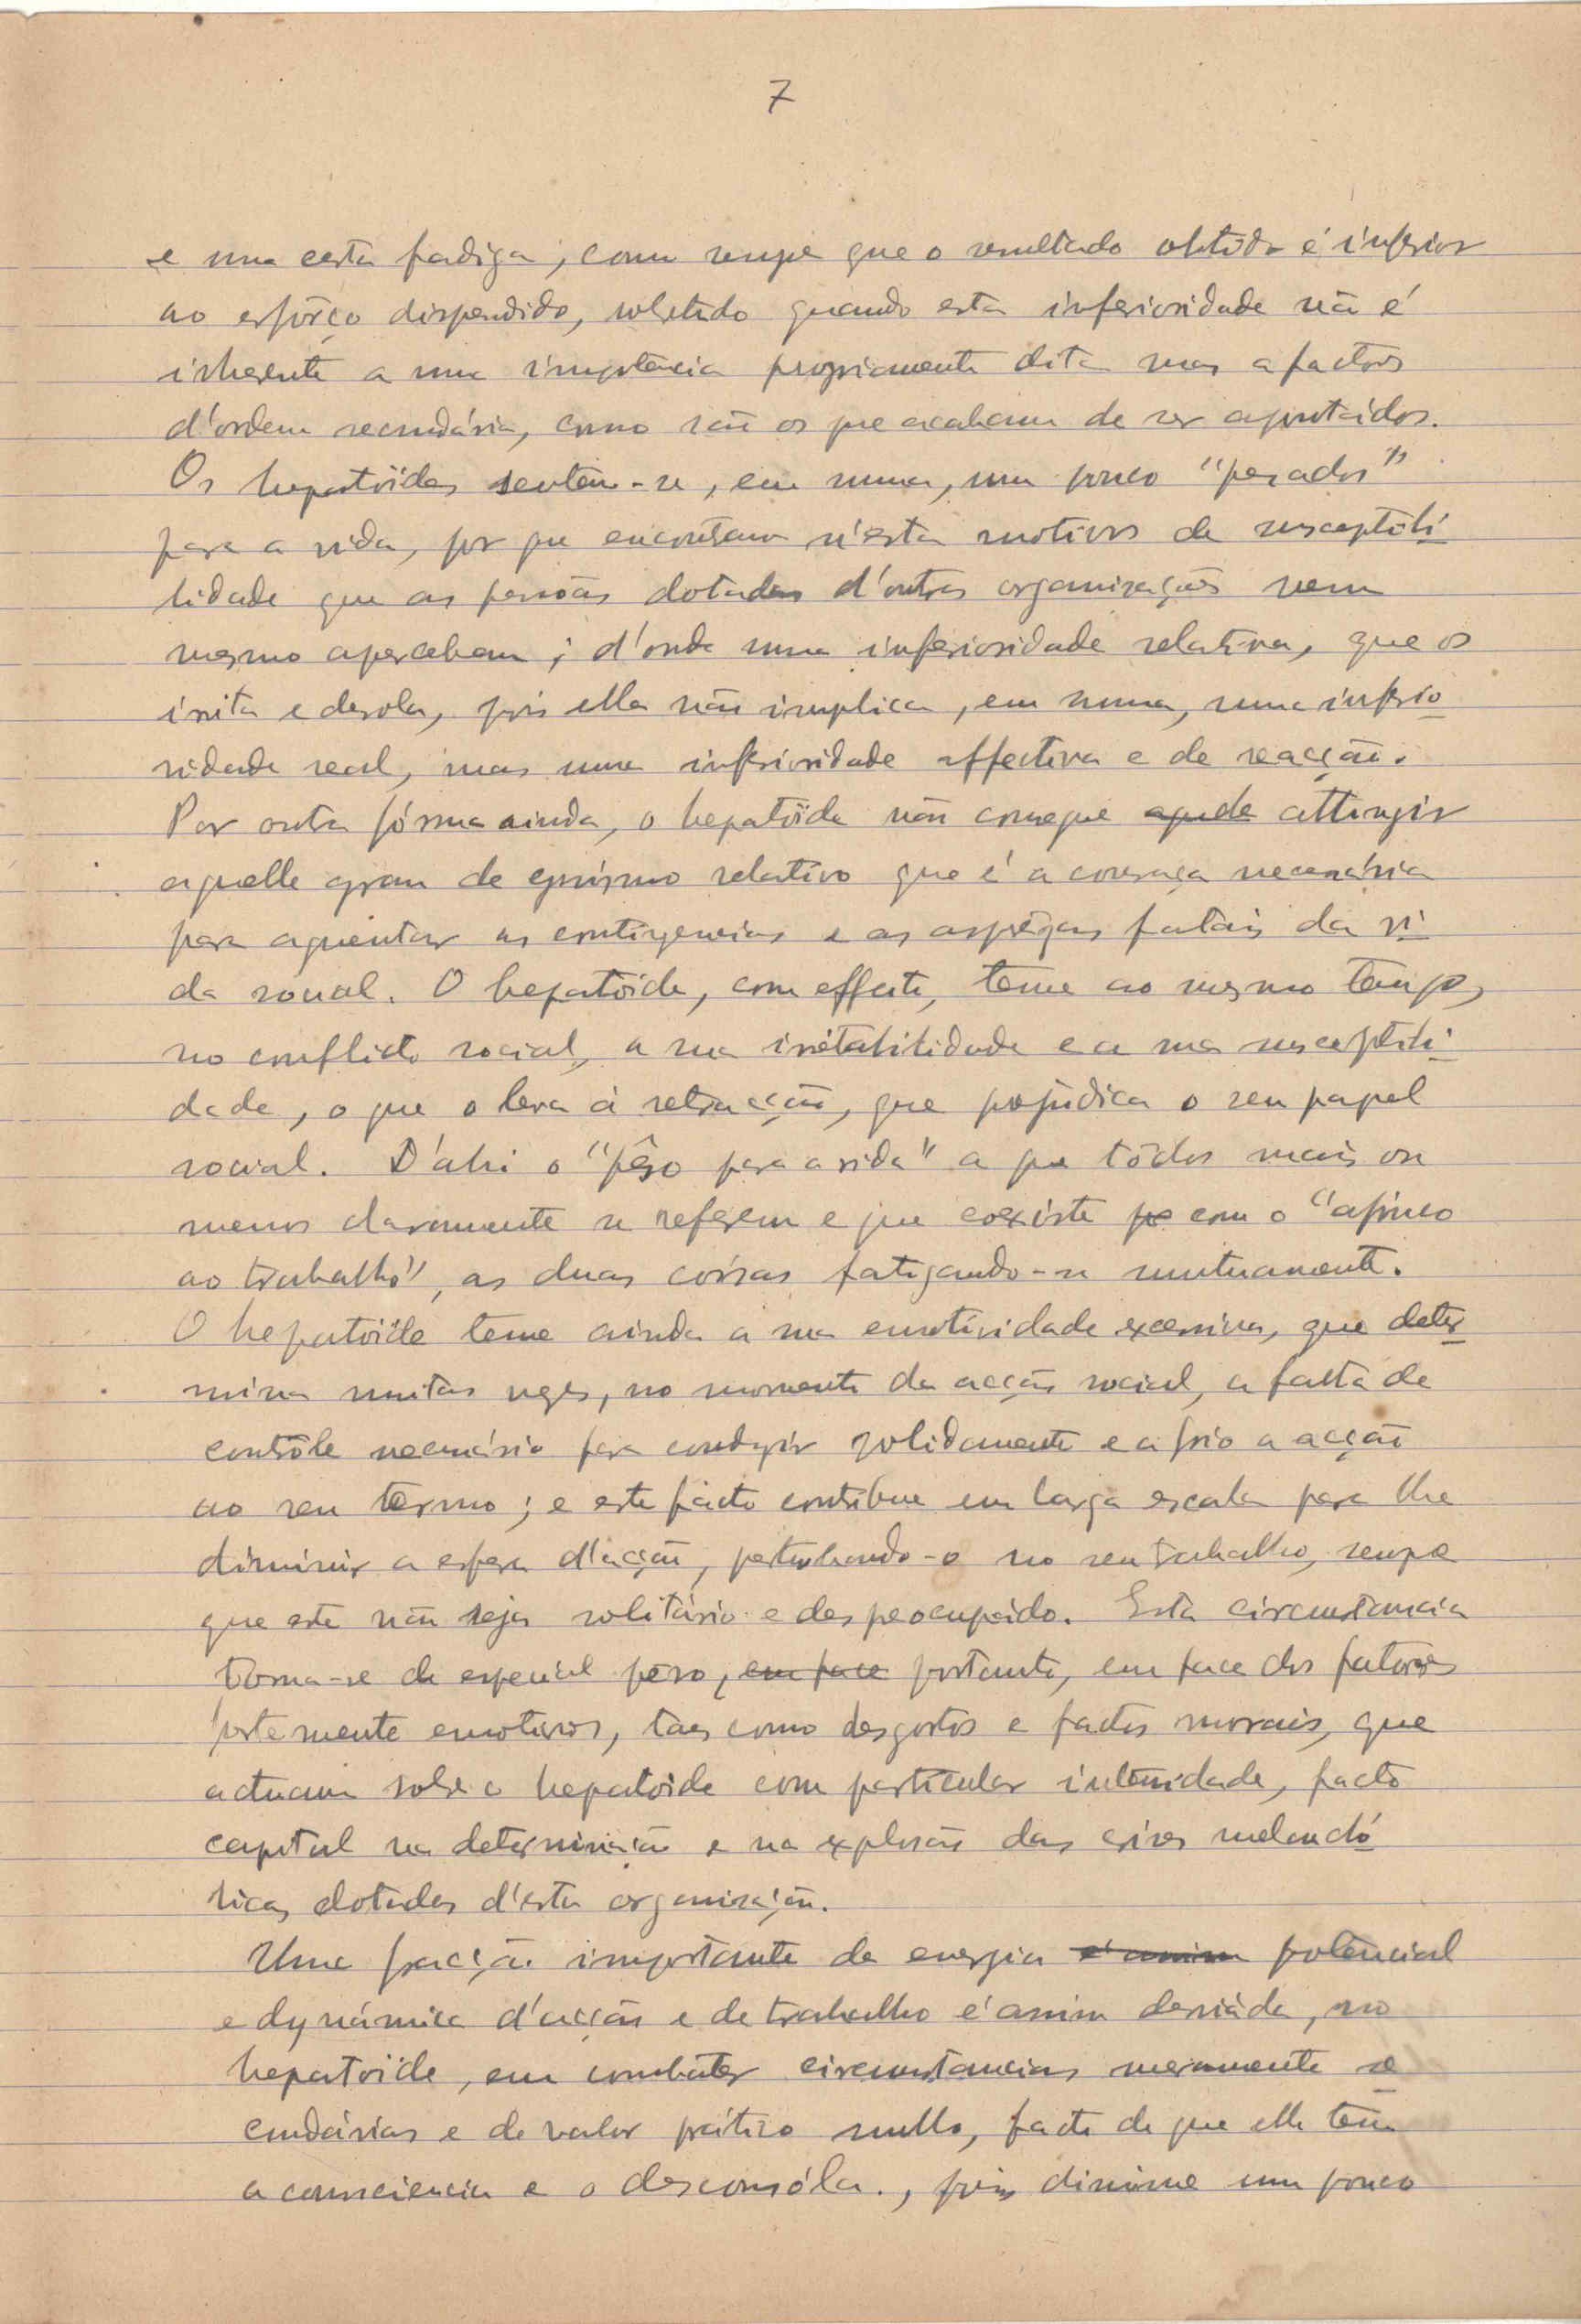 7
e uma certa fadiga, como sempre que o resultado obtido é inferior
ao esfôrço dispendido, sobretudo quando esta inferioridade não é
inherente a uma impotencia propriamente dita mas a factores
d'ordem secundária, como são os que acabam de ser apontados.
Os hepatoïdes sentem-se, em suma, um pouco "pesados"
para a vida, por que encontram n'esta motivos de susceptibi
lidade que as pessoas dotadas d'outras organizações nem
mesmo apercebem; d'onde uma inferioridade relativa, que os
irrita e desola, pois ella não implica, em suma, uma inferio
ridade real, mas uma inferioridade affectiva e de reacção.
Por outra fórma ainda, o hepatoïde não consegue aquele attingir
aquelle grau de egoismo relativo que é a couraça necessária
para aguentar as contingencias e as asperezas fatais da vi
da social. O hepatoïde, com effeito, teme ao mesmo tempo,
no conflicto social, a sua irritabilidade e a sua susceptibi
dade, o que o leva á retracção, que prejudica o seu papel
social. D'ahi o "pêso para a vida" a que tôdos mais ou
menos claramente se referem e que coexiste pe com o "afinco
ao trabalho", as duas coisas fatigando-se mutuamente.
O hepatoïde teme ainda a sua emotividade excessiva, que deter
mina muitas vezes, no momento da acção social, a falta de
contrôle necessário para conduzir solidamente e a frio a acção
ao seu termo; e este facto contribue em larga escala para lhe
diminuir a esfera d'acção, perturbando-o no seu trabalho, sempre
que este não seja solitário e despreocupado. Esta circunstancia
torna-se de especial pêso, em face portanto, em face dos fatores
fortemente emotivos, taes como desgostos e factos morais, que
actuam sobre o hepatoide com particular intensidade, facto
capital na determinação e na explosão das crises melancó
licas dotadas d'esta organisação.
Uma fracção importante de energia é assim potencial
e dynámica d'acção e de trabalho é assim desviada, no
hepatoïde, em combater circumstancias meramente se
cundárias e de valor prático nullo, facto de que elle tem
a consciencia e o desconsóla., pois diminue um pouco